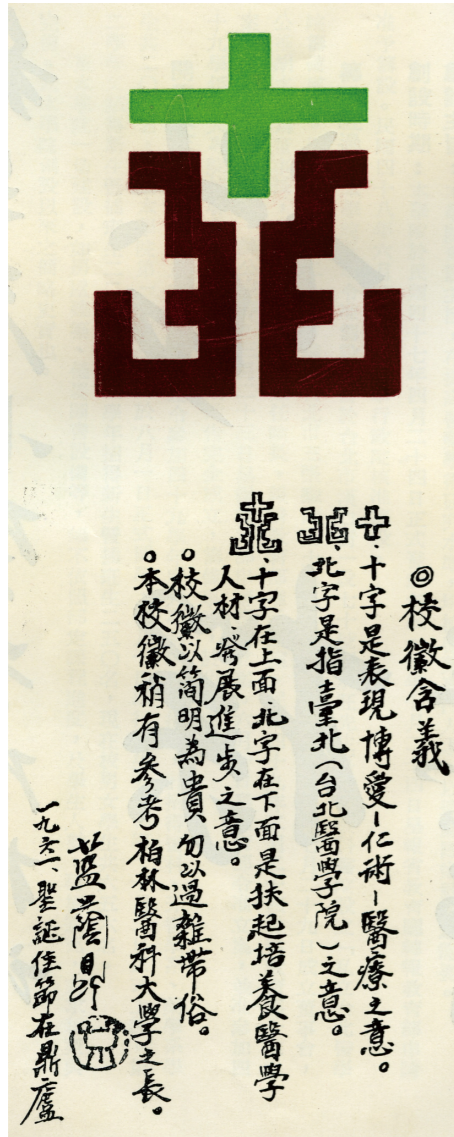 ◎校徽含義
十字是表現博愛－仁術－醫療之意。
北字是指臺北（台北醫學院）之意。
十字在上面、北字在下面是扶起培養醫學
人材、發展進步之意。
。校徽以簡明為貴勿以過雜帶俗。
。本校徽稍有參考柏林醫科大學之長。
藍蔭鼎
一九六一、聖誕佳節在鼎廬